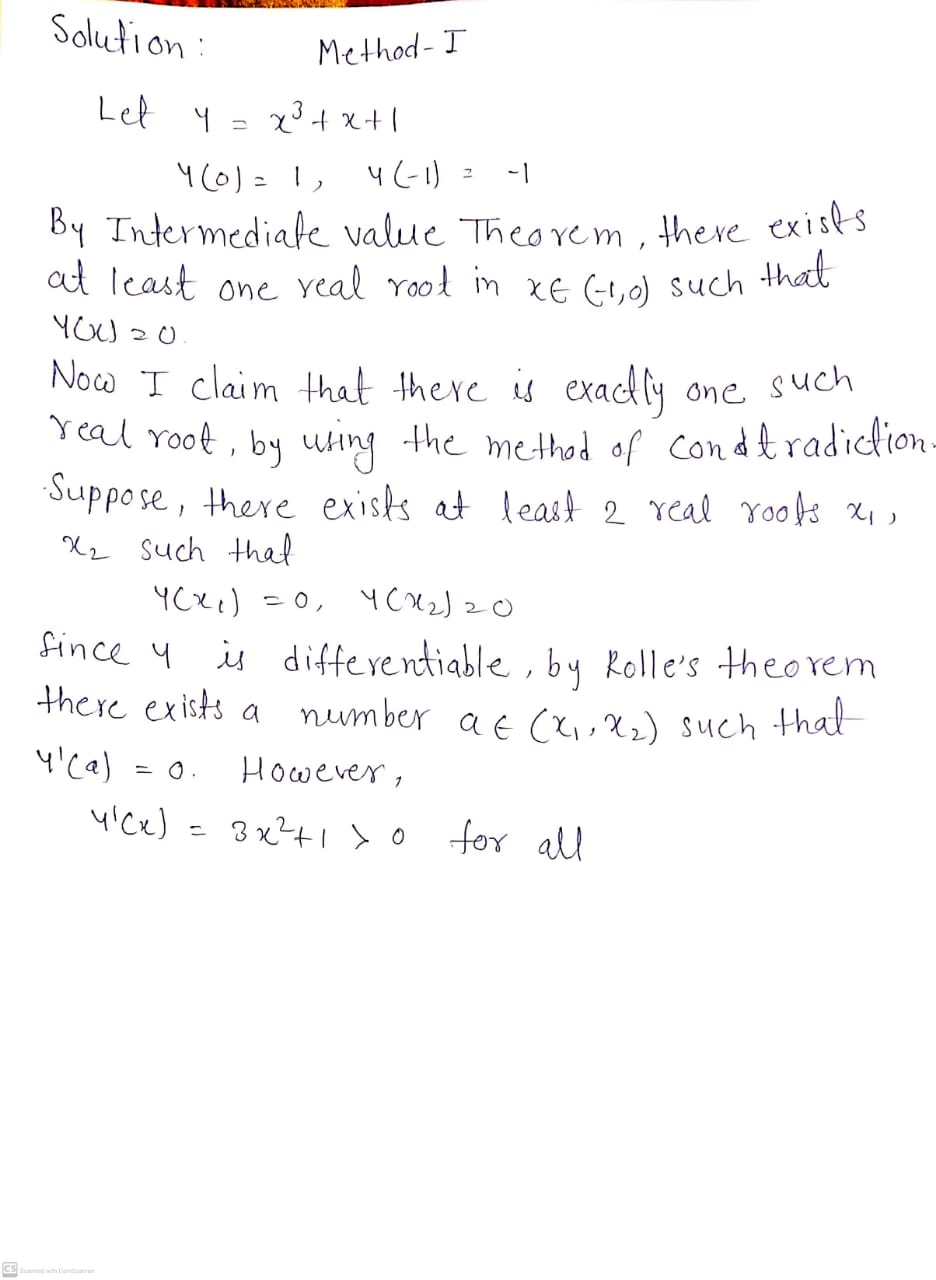 Solution : Method-I
Let y = x³ + x + 1
y(0) = 1, y(-1) = -1
By Intermediate value Theorem, there exists
at least one real root in x ∈ (-1,0) such that
y(x) = 0.
Now I claim that there is exactly one such
real root, by using the method of condtradiction.
Suppose, there exists at least 2 real roots x₁,
x₂ such that
y(x₁) = 0, y(x₂) = 0
Since y is differentiable, by Rolle's theorem
there exists a number a ∈ (x₁, x₂) such that
y'(a) = 0. However,
y'(x) = 3x² + 1 > 0 for all
CS Scanned with CamScanner